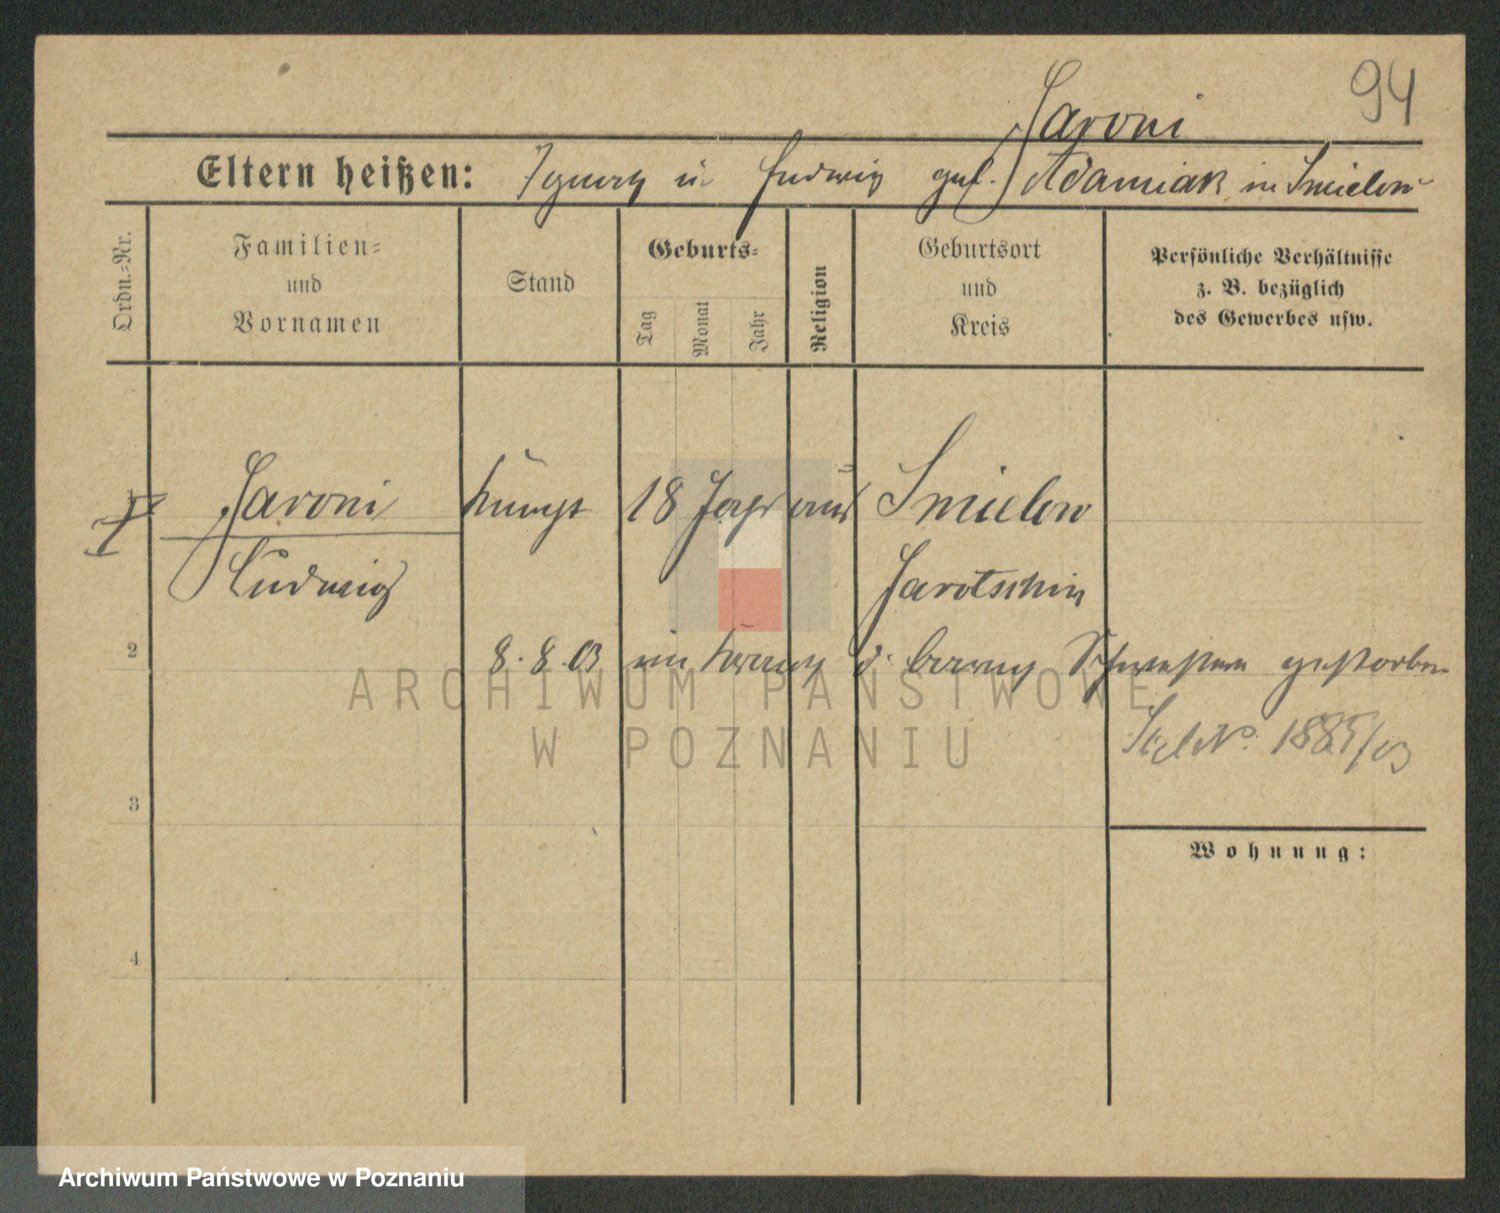 94
Jaroni
Eltern heißen: Ignatz u Ludwig geb. Adamiak in Smielow
Ordn.=Nr.
Familien=
und
Vornamen
Stand
Geburts=
Tag
Monat
Jahr
Religion
Geburtsort
und
Kreis
Persönliche Verhältnisse
z. B. bezüglich
des Gewerbes usw.
1
Jaroni
18 Jahr
Smielow
Ludwig
Jarotschin
2
8. 8. 03 im d. barmh Schwestern gestorben
1885/03
3
Wohnung:
4
ARCHIWUM PAŃSTWOWE
W POZNANIU
Archiwum Państwowe w Poznaniu